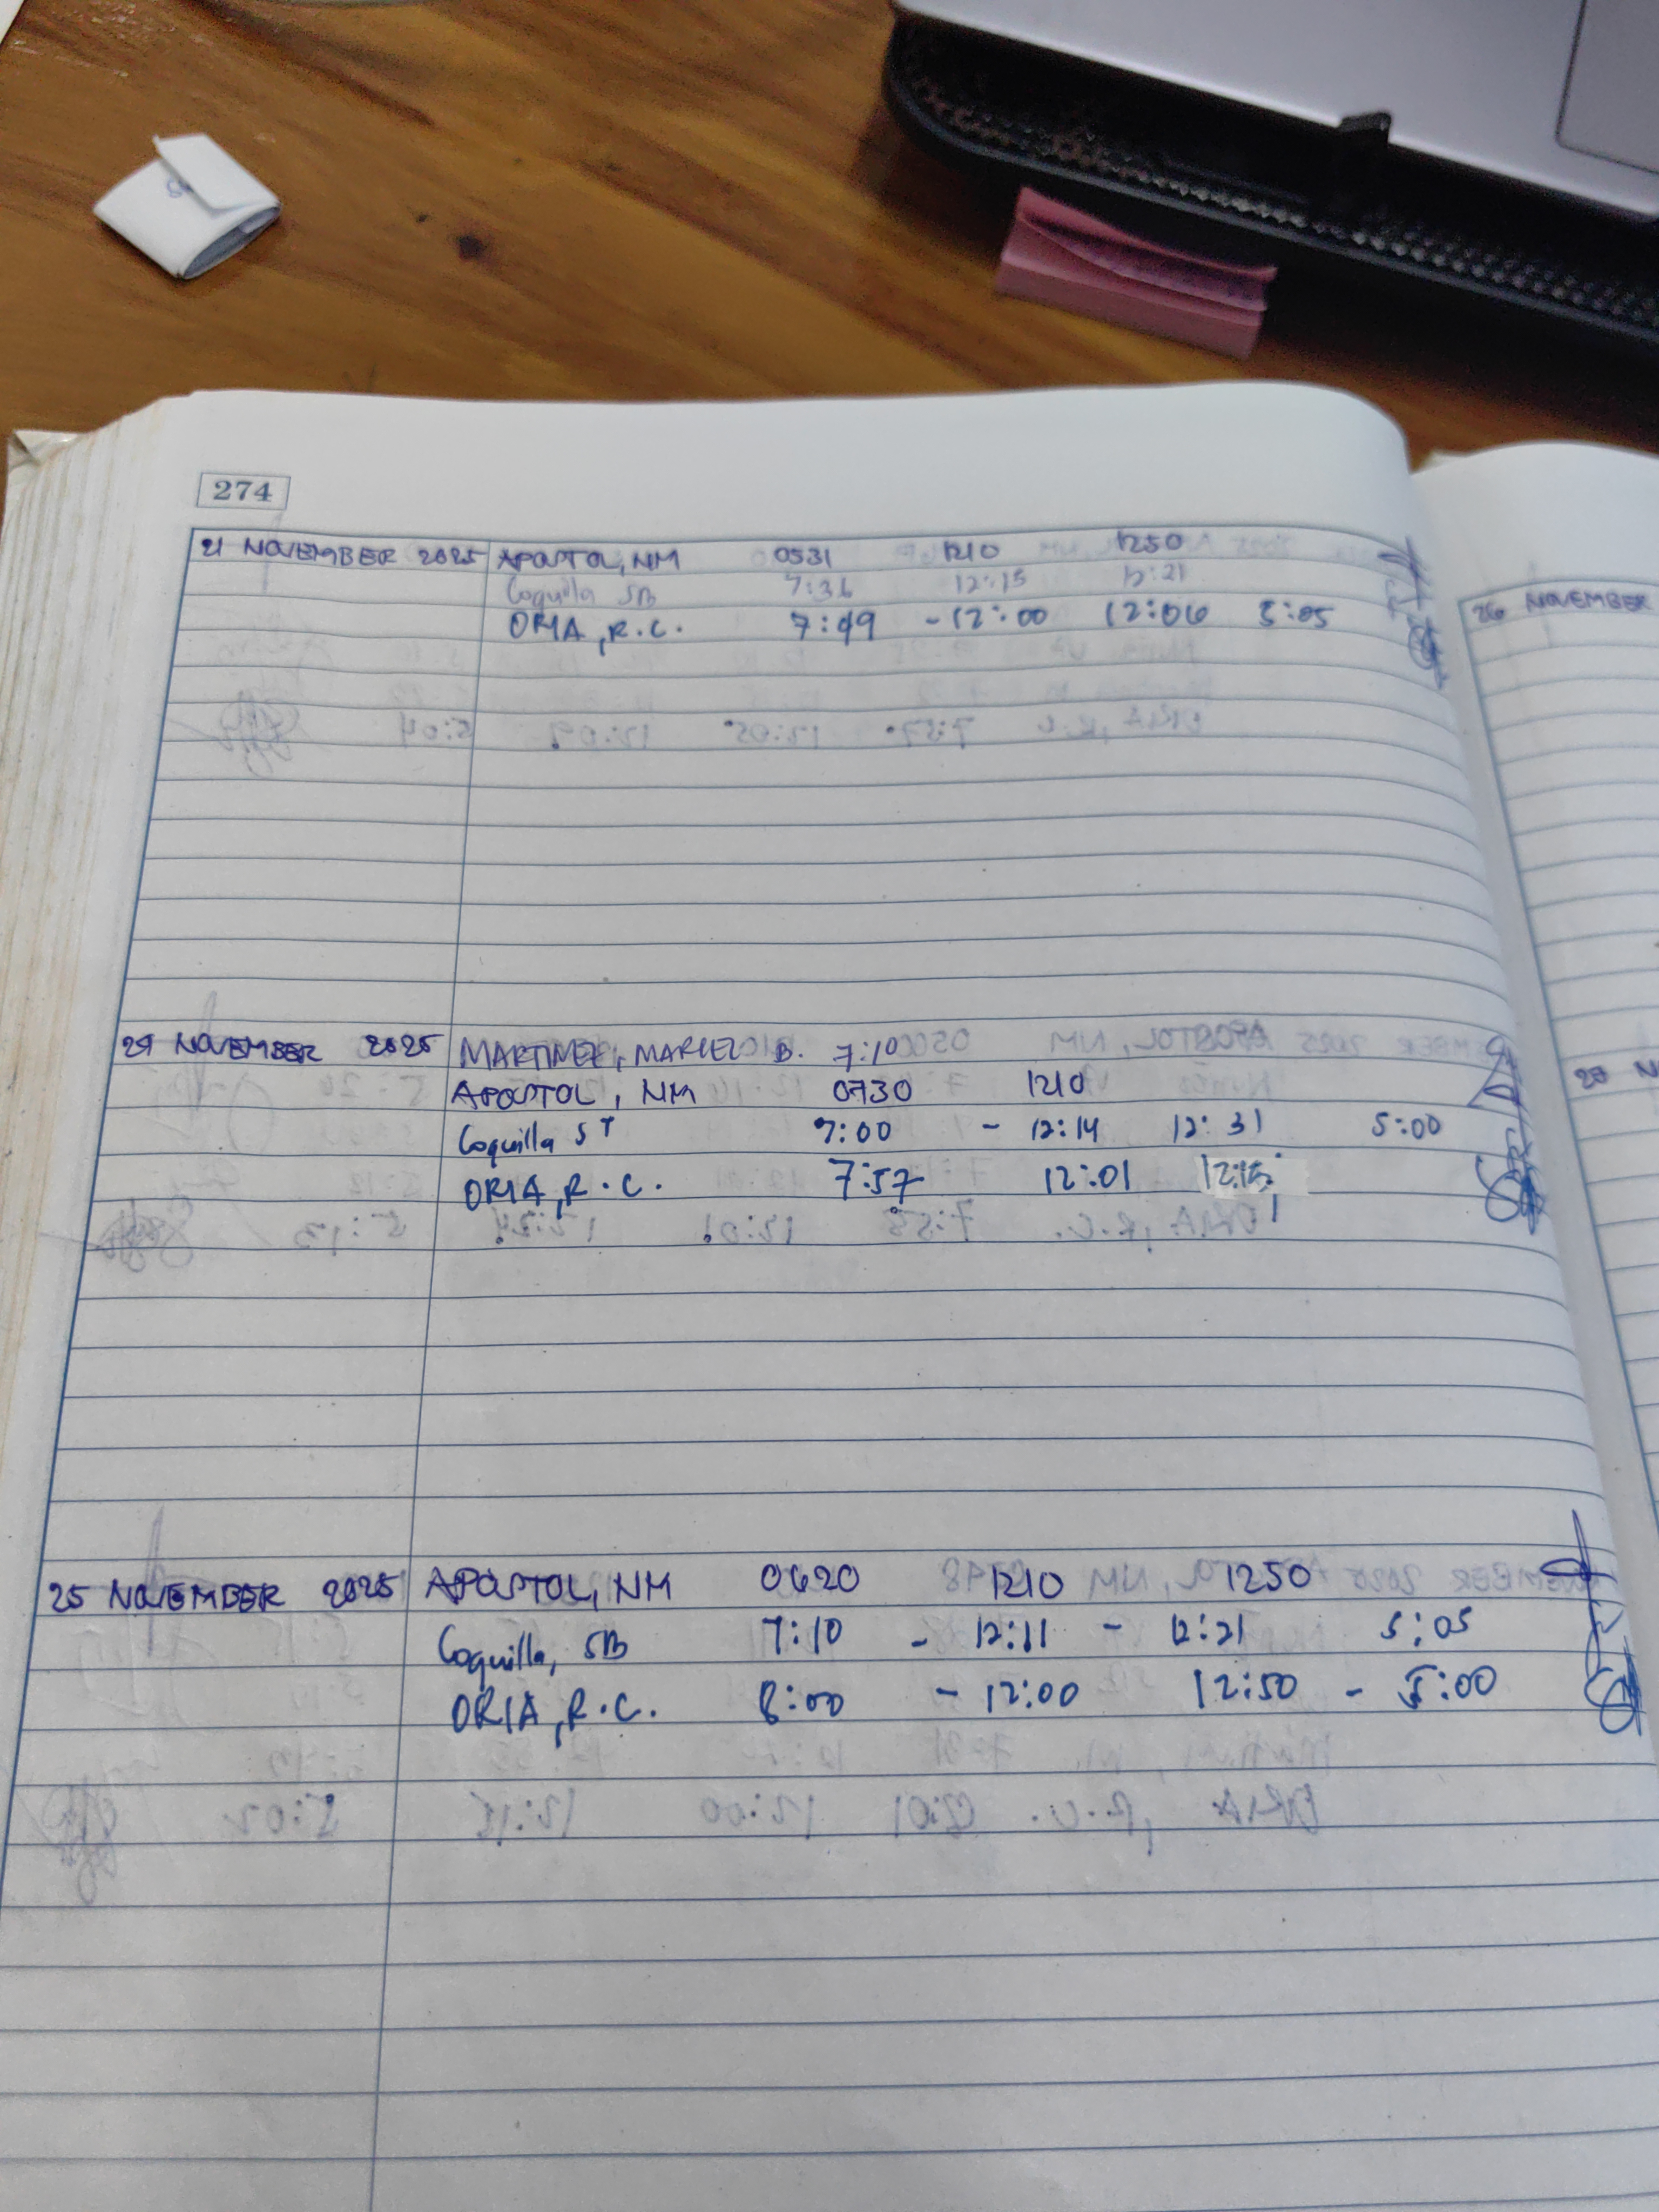 274
21 NOVEMBER 2025 APOSTOL, NM 0531 1210 1250
Coquilla SB 7:36 12:15 12:21
ORIA, R.C. 7:49 - 12:00 12:06 5:05
MARTINEZ, B. 7:10
NOVEMBER 2025
APOSTOL, NM 0730 1210
Coquilla 7:00 - 12:14 12:31 5:00
ORIA, R.C. 7:57 12:01 12:15
25 NOVEMBER 2025 APOSTOL, NM 0620 1210 1250
Coquilla, SB 7:10 - 12:11 - 12:21 5:05
ORIA, R.C. 8:00 - 12:00 12:50 - 5:00
26 NOVEMBER